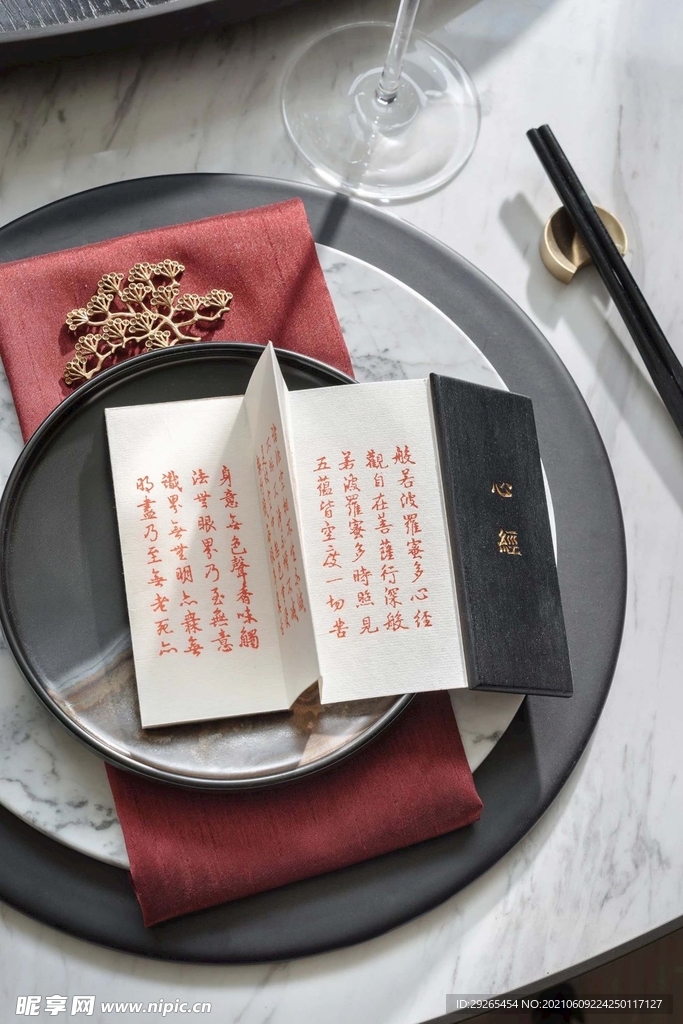 心經
般若波羅蜜多心経
觀自在菩薩行深般
若波羅蜜多時照見
五蘊皆空度一切苦
身意無色聲香味觸
法無眼界乃至無意
識界無無明亦無無
明盡乃至無老死亦
昵享网 www.nipic.cn
ID:29265454 NO:20210609224250117127